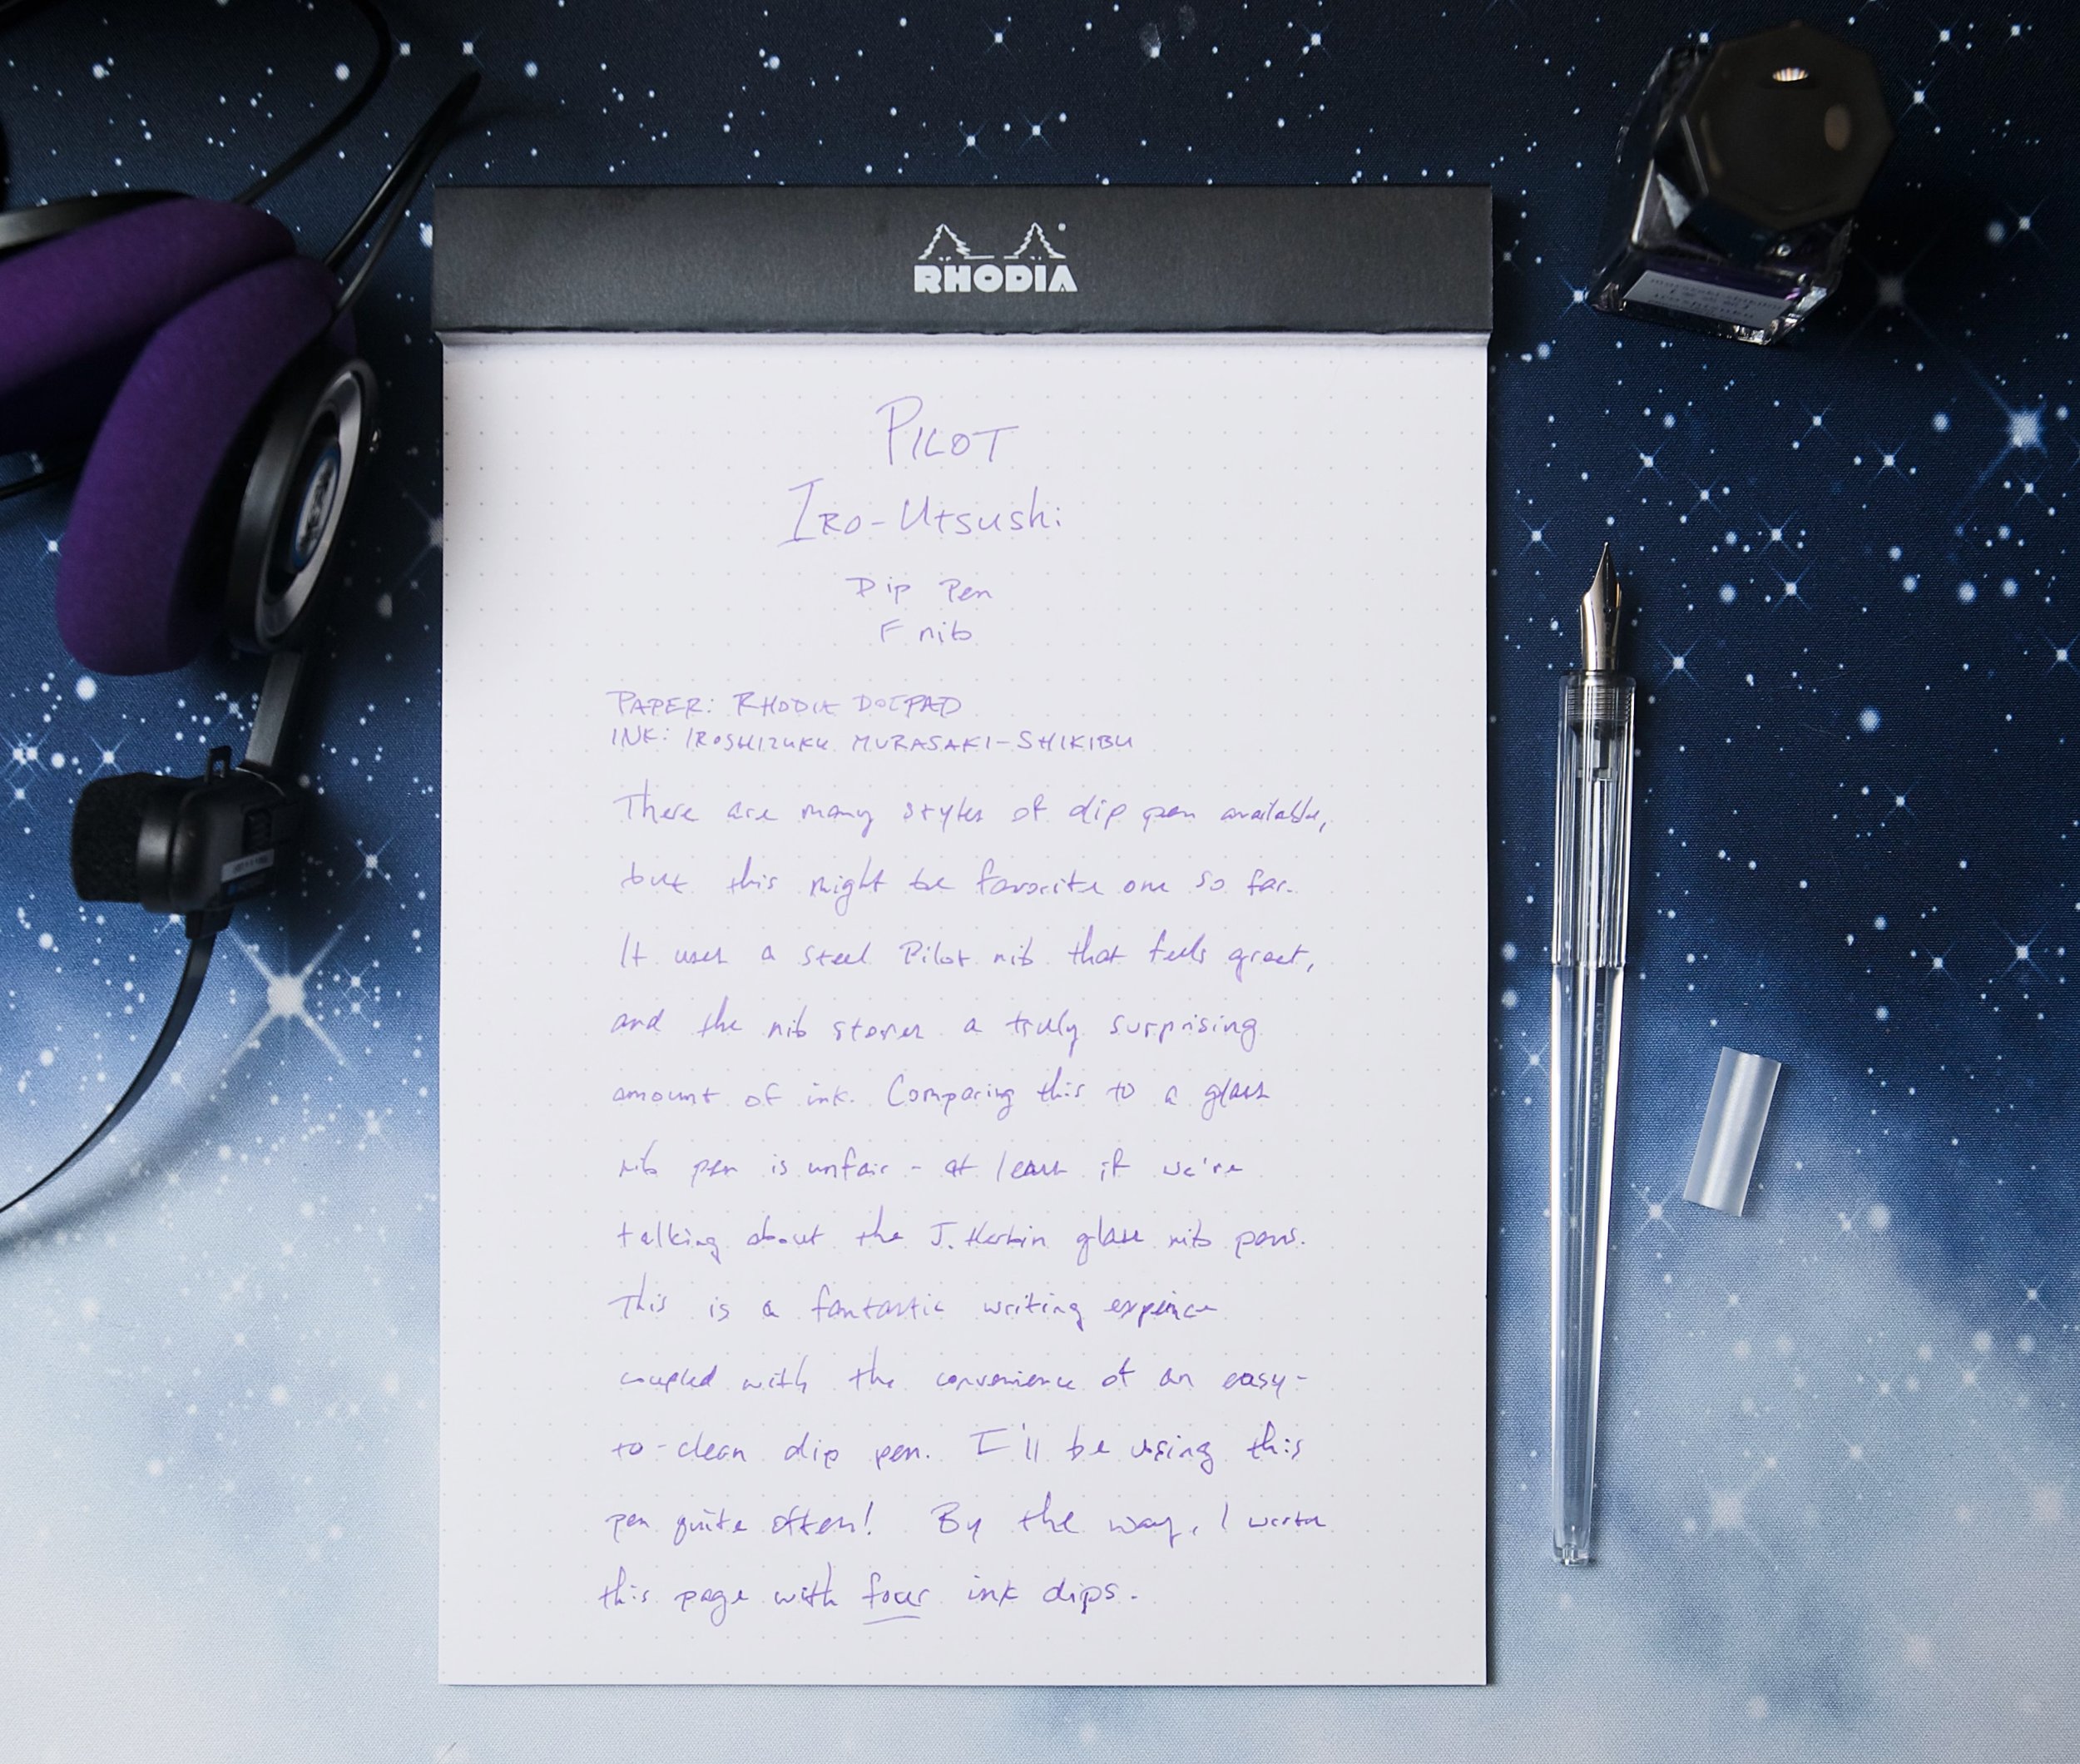 RHODIA
PILOT
IRO-Utsushi
Dip Pen
F nib
PAPER: RHODIA DOTPAD
INK: IROSHIZUKU MURASAKI-SHIKIBU
There are many styles of dip pen available,
but this might be favorite one so far.
It uses a steel Pilot nib that feels great,
and the nib stores a truly surprising
amount of ink. Comparing this to a glass
nib pen is unfair - at least if we're
talking about the J. Herbin glass nib pens.
This is a fantastic writing expience
coupled with the convenience of an easy-
to-clean dip pen. I'll be using this
pen quite often! By the way, I wrote
this page with four ink dips.